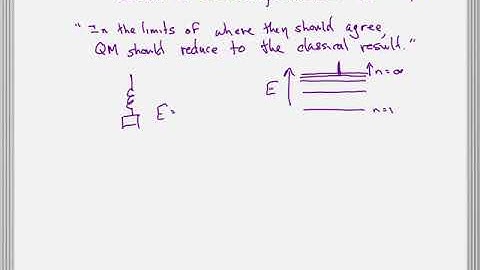 "In the limits of where they should agree,
QM should reduce to the classical result."
n=∞
E
E=
n=1